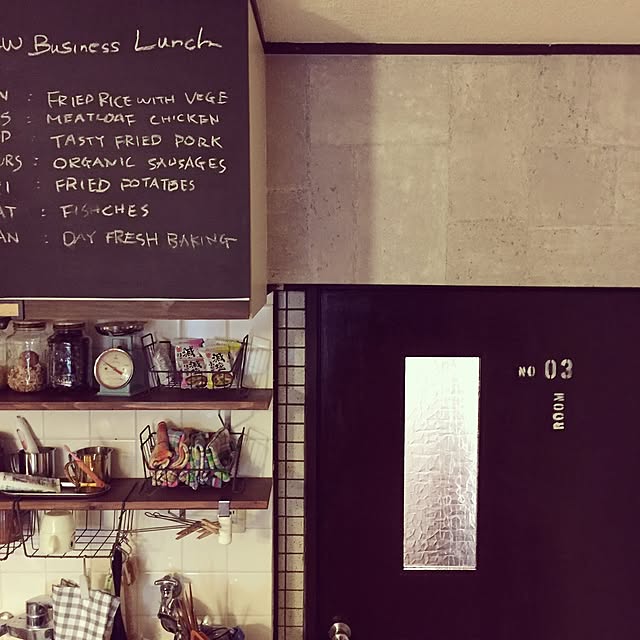 W Business Lunch
N : FRIED RICE WITH VEGE
S : MEATLOAF CHICKEN
D TASTY FRIED PORK
URS : ORGANIC SAUSAGES
I : FRIED POTATOES
AT : FISHCHES
AN : DAY FRESH BAKING
NO 03
ROOM